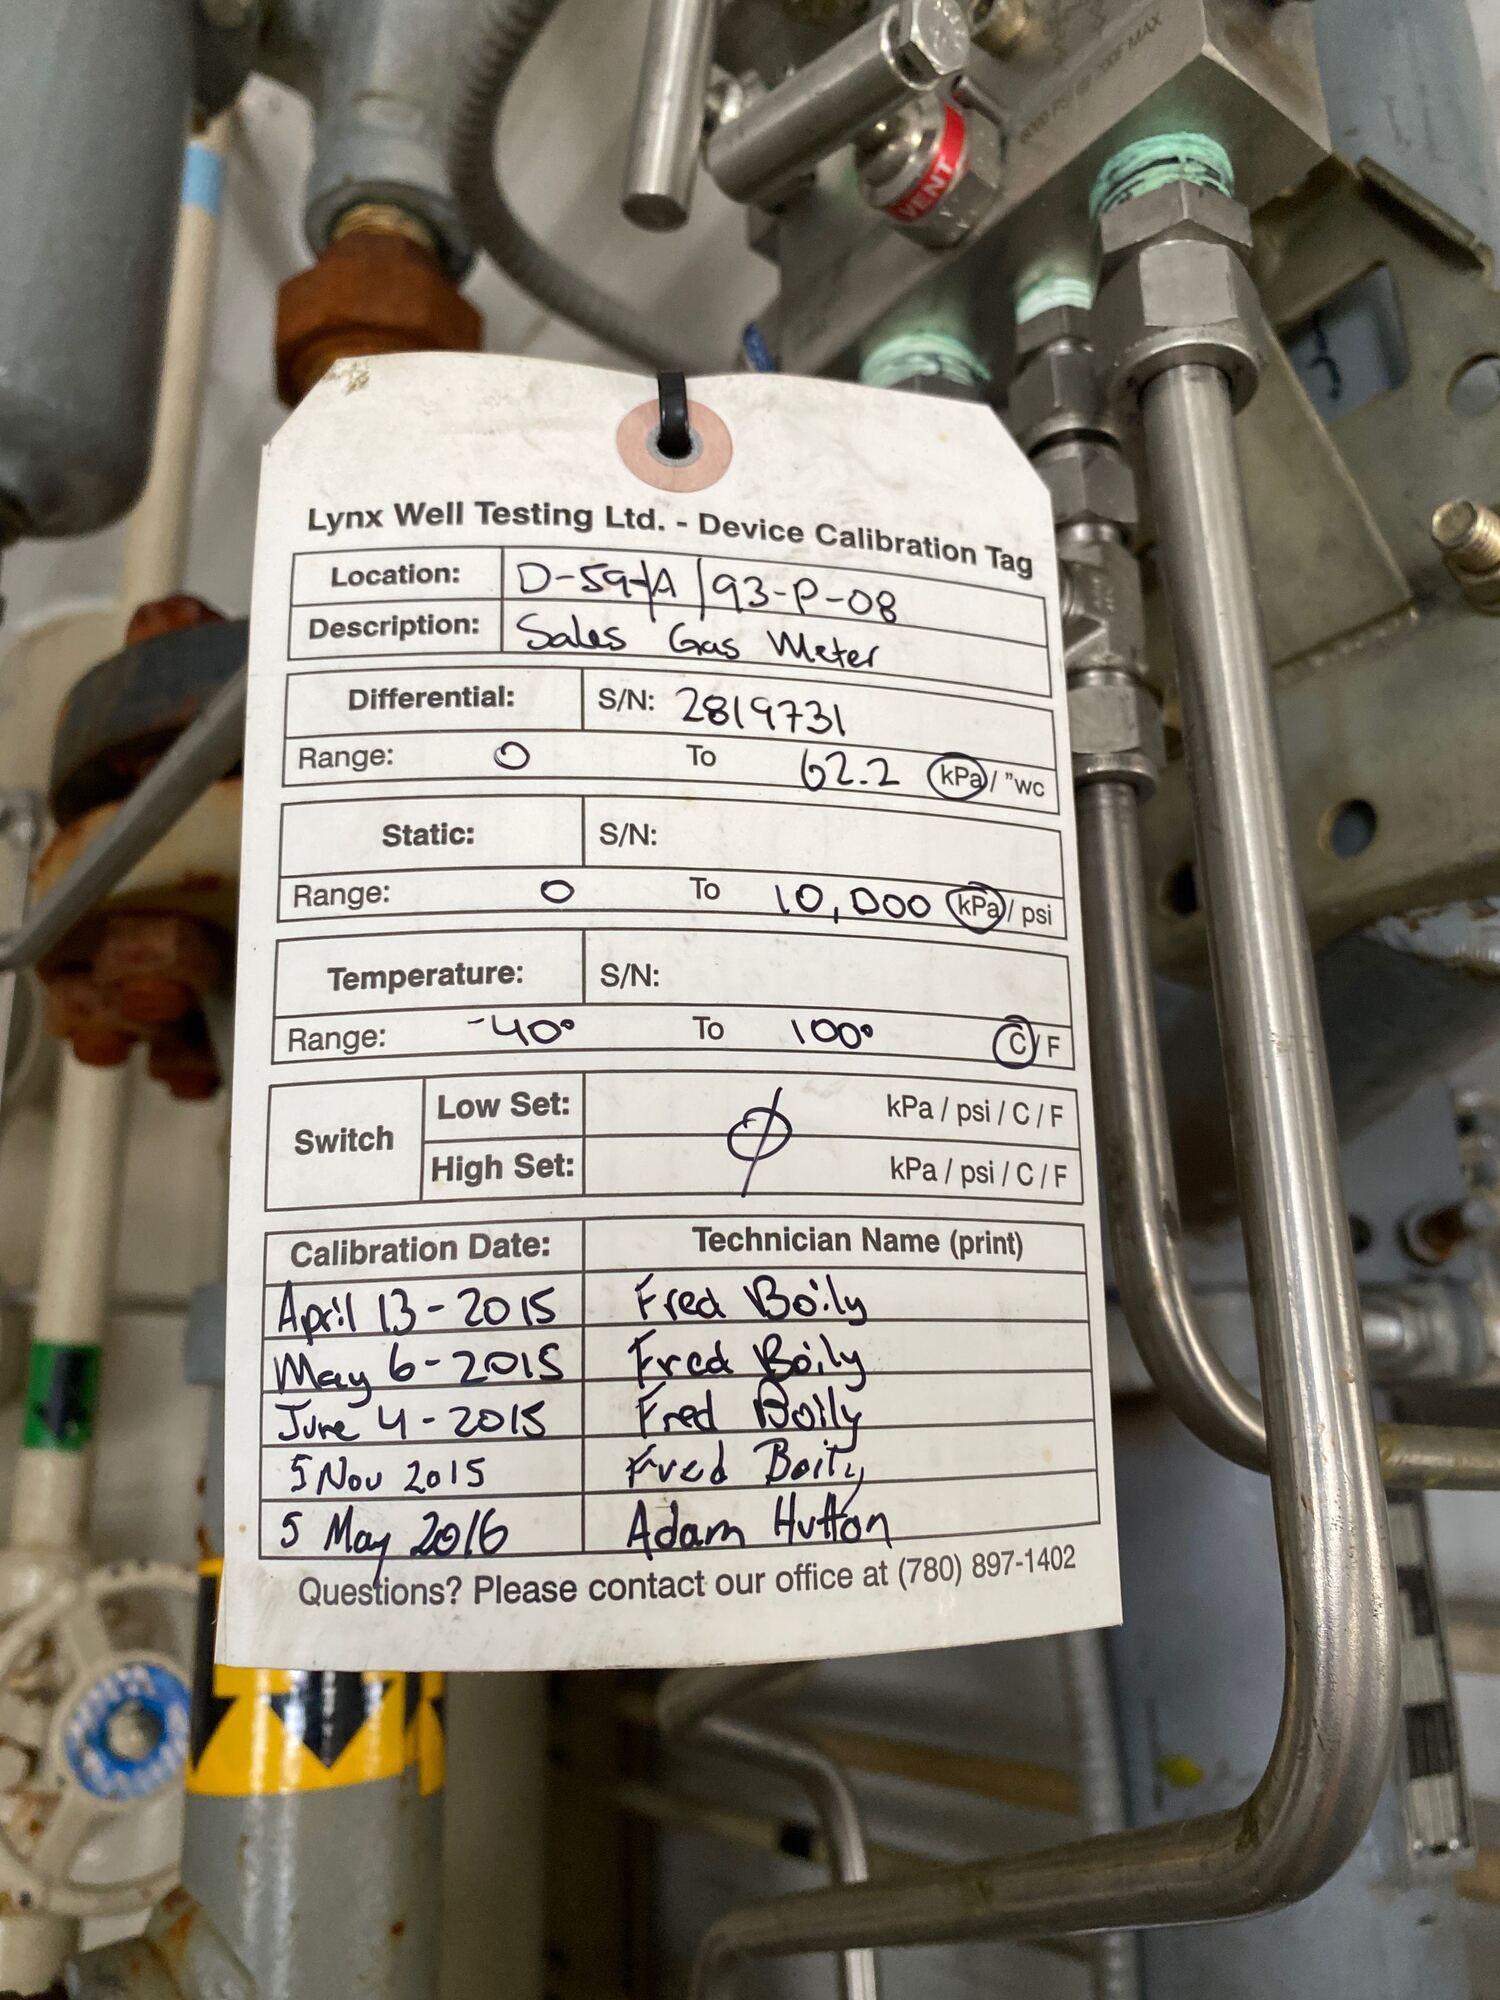 6000 PSI @ 200F MAX
VENT
Lynx Well Testing Ltd. - Device Calibration Tag
Location: D-59-A/93-P-08
Description: Sales Gas Meter
Differential: S/N: 2819731
Range: 0 To 62.2 kPa / "wc
Static: S/N:
Range: 0 To 10,000 kPa / psi
Temperature: S/N:
Range: -40° To 100° C / F
Switch
Low Set: kPa / psi / C / F
High Set: kPa / psi / C / F
Calibration Date: Technician Name (print)
April 13-2015 Fred Boily
May 6-2015 Fred Boily
June 4-2015 Fred Boily
5 Nov 2015 Fred Boily
5 May 2016 Adam Hutton
Questions? Please contact our office at (780) 897-1402